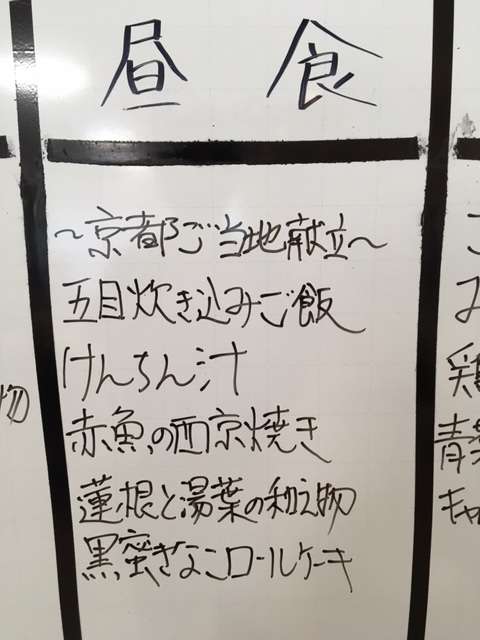 昼食
～京都ご当地献立～
五目炊き込みご飯
けんちん汁
赤魚の西京焼き
蓮根と湯葉の和え物
黒蜜きなこロールケーキ
物
鶏
青
キャ